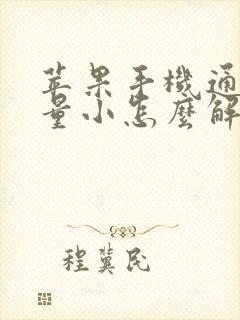 苹果手機通
量小怎麼解
程冀民